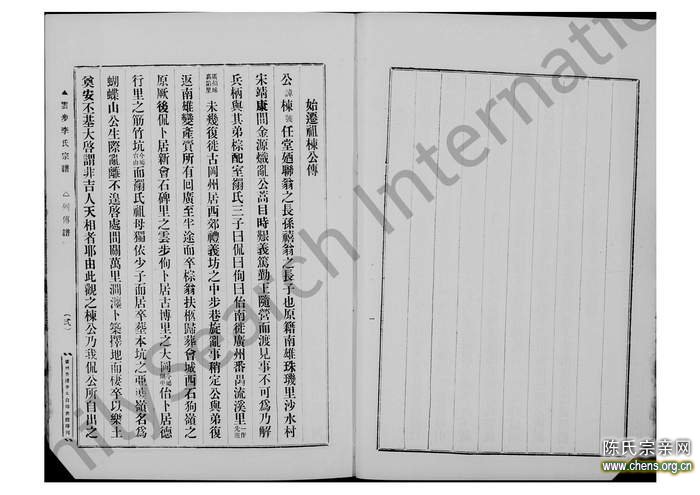 始遷祖棟公傳
公諱棟號任堂廼聯翁之長孫禧翁之長子也原籍南雄珠璣里沙水村
宋靖康間金源熾亂公蒿目時艱義篤勤王隨營而渡見事不可爲乃解
兵柄與其弟棕配室鄒氏三子曰侃曰佝曰佁南徙廣州番禺流溪里一作
未幾復徙古岡州居西郊禮義坊之中步巷旋亂事稍定公與弟復
返南雄變產賣所有回廣至半途而卒棕翁扶柩歸葬會城西石狗嶺之
原厥後侃卜居新會石碑里之雲步佝卜居古博里之大同佁卜居德
行里之筋竹坑今屬台山而鄒氏祖母獨依少子而居卒塟本坑之亞黃嶺名爲
蝴蝶山公生際亂離不遑啓處間關萬里澗瀍卜築擇地而棲卒以樂土
奠安丕基大啓謂非吉人天相者耶由此觀之棟公乃我侃公所自出之
▲雲步李氏宗譜
傳譜
（弍）
FamilySearch International
陈氏宗亲网
www.chens.org.cn